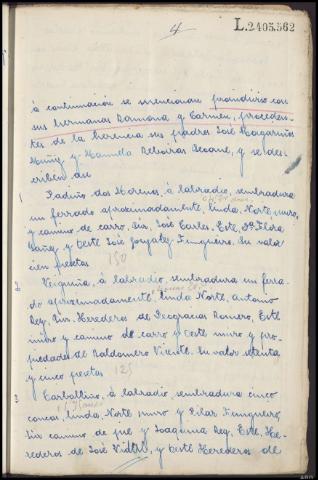 4
L.2405.562
á continuación se mencionan proindiviso con
sus hermanas Ramona y Carmen, proceden-
tes de la herencia sus padres José Magariños
Muñiz y Manuela Reboiras Seoane, y se des-
criben así
1 á labradío, sembradura
un ferrado aproximadamente, linda, Norte muro,
y camino de carro, Sur, José Carles, Este, Dª Flora
y Oeste José González Junquera. Su valor
cien pesetas
150
2 á labradío, sembradura un ferra-
do aproximadamente, linda Norte, Antonio
Rey, Sur, Herederos de Deogracias Romero, Este
muro y camino de carro y Oeste muro y pro-
piedades de Baldomero Vicente. Su valor setenta
y cinco pesetas
125
3 Carballiño, á labradío, sembradura cinco
concas, linda, Norte muro y Pilar Junquera,
Sur camino de pie y Joaquina Rey, Este, He-
rederos de José y Oeste Herederos de